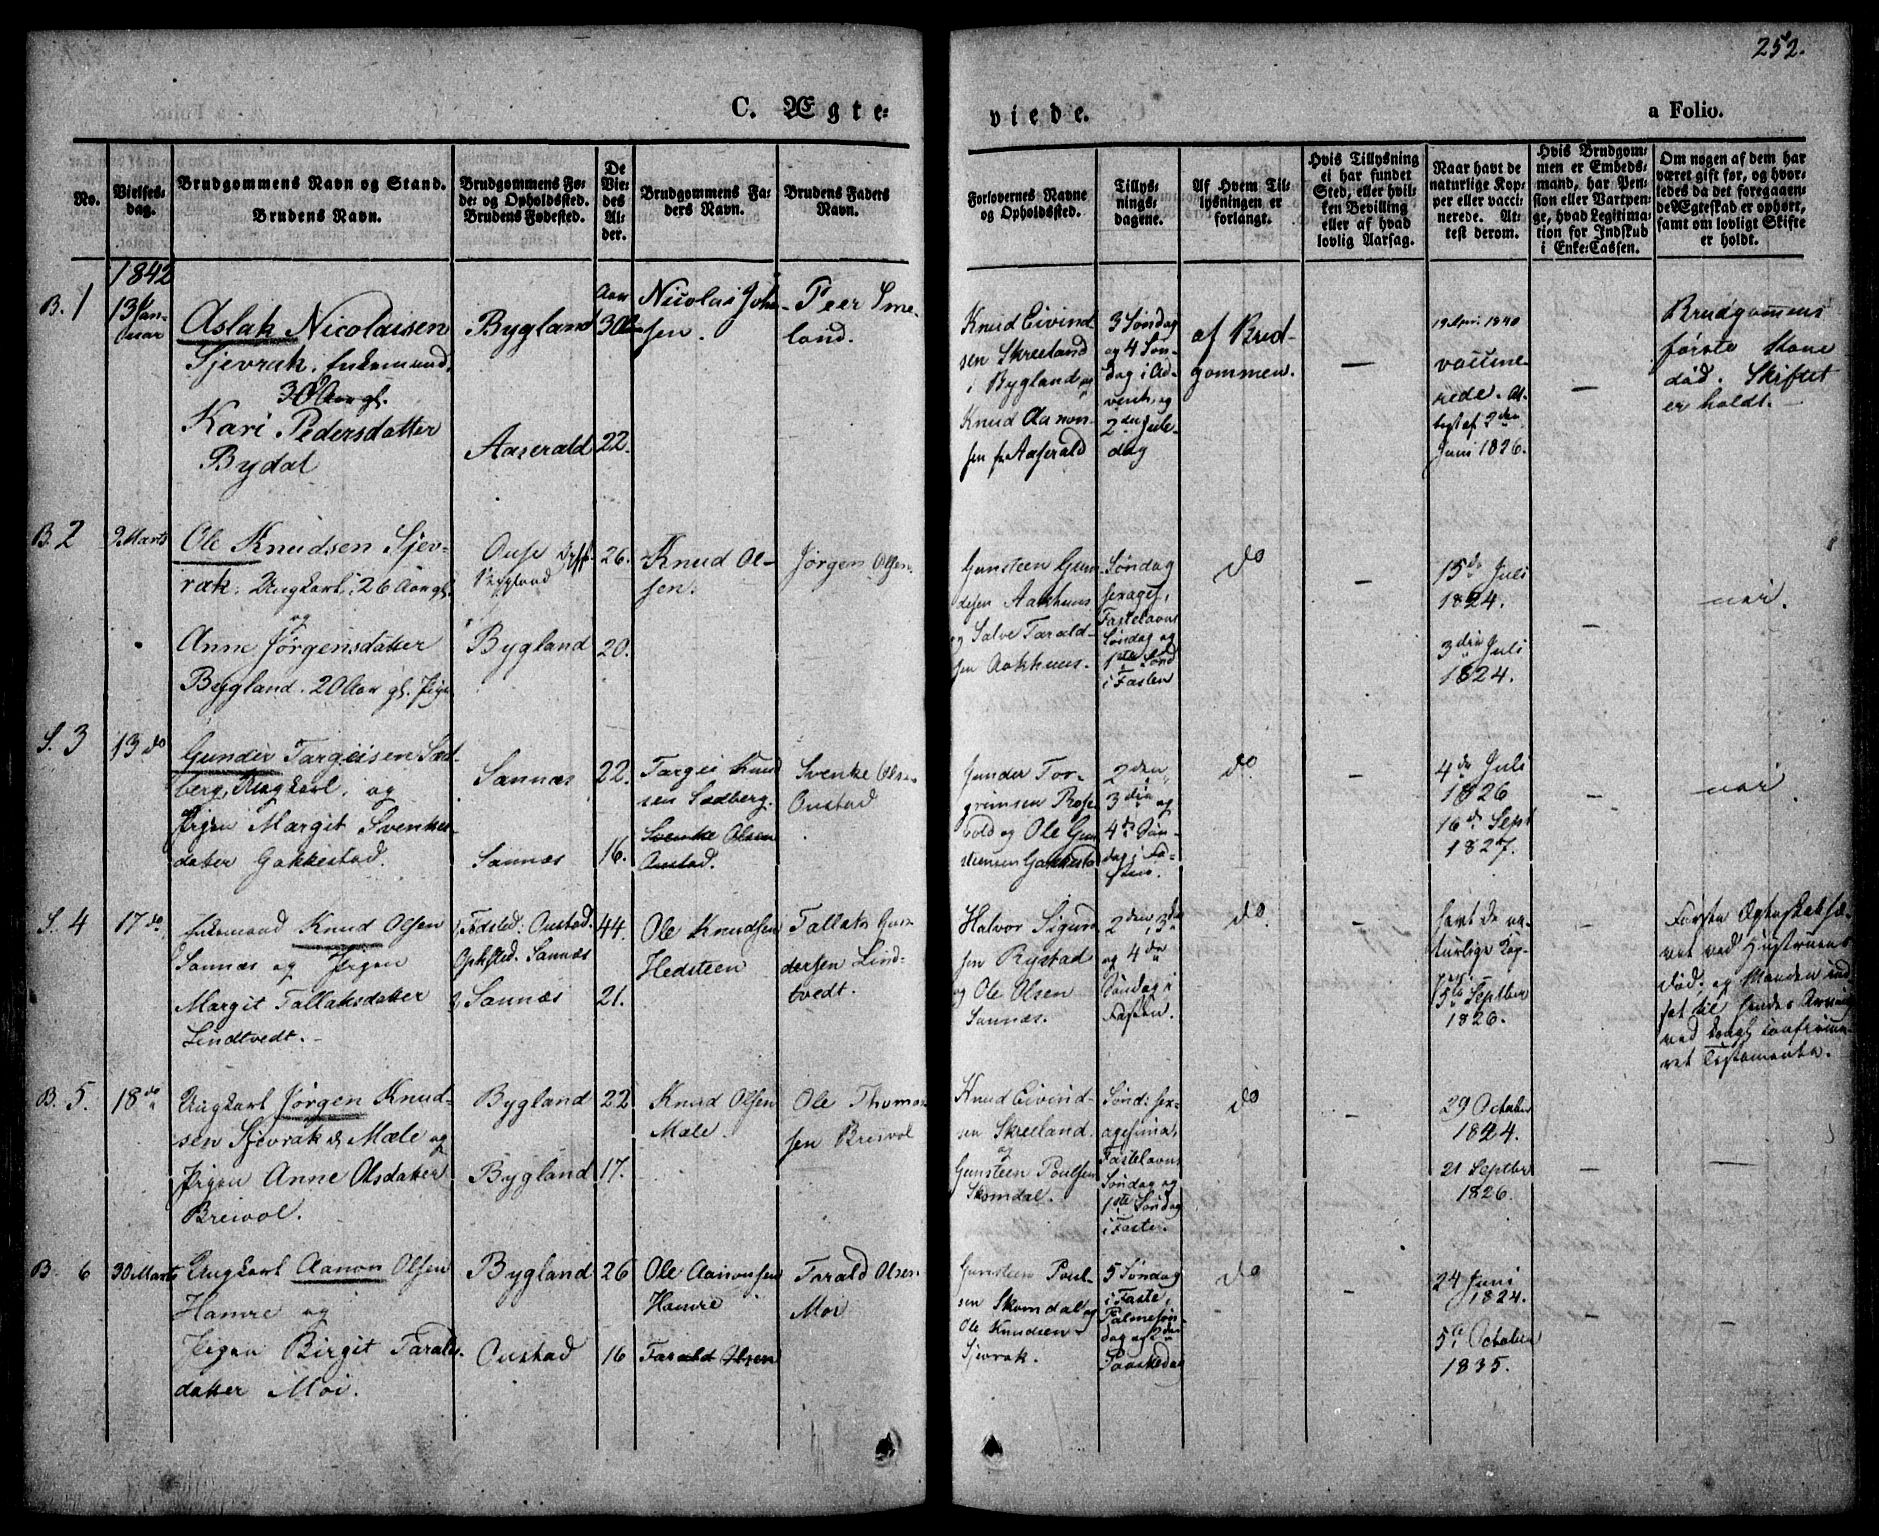 252.
C. Ægte-
viede.
a Folio.
No.
Vielses-
dag.
Brudgommens Navn og Stand.
Brudens Navn.
Brudgommens Fø-
de- og Opholdssted.
Brudens Fødested.
De
Vie-
des
Al-
der.
Brudgommens Fa-
ders Navn.
Brudens Faders
Navn.
Forlovernes Navne
og Opholdssted.
Tillys-
nings-
dagene.
Af Hvem Til-
lysningen er
forlangt.
Hvis Tillysning
ei har fundet
Sted, eller hvil-
ken Bevilling
eller af hvad
lovlig Aarsag.
Naar havt de
naturlige Kop-
per eller vacci-
nerede. At-
test derom.
Hvis Brudgom-
men er Embeds-
mand, har Pen-
sion eller Vartpen-
ge, hvad Legitima-
tion for Indskud
i Enke-Cassen.
Om nogen af dem har
været gift før, og hvor-
ledes da det foregaaen-
de Ægteskab er ophørt,
samt om lovligt Skifte
er holdt.
1842
B. 1
13 Jan-
uar
Aslak Nicolaisen
Sjevrak, Enkemand,
30 Aar gl.
Kari Pedersdatter
Bydal
Bygland
Aaserald
Aar
30
22.
Nicolai Joha-
sen.
Peer Sme-
land.
Knud Eivind-
sen Skreeland
i Bygland og
Knud Aanon-
sen fr Aaserald
3 Søndag
og 4 Søn-
dag i Ad-
vent, og
2den Jule-
dag
af Brud-
gommen.
19 Apr. 1840
vaccine-
rede. At-
test af 2den
Juni 1826.
Brudgommens
første Kone
død. Skiftet
er holdt.
B. 2
9 Marts
Ole Knudsen Sjev-
rak, Ungkarl, 26 Aar gl.
og
Anne Jørgensdatter
Bygland. 20 Aar gl. Pige
Bygland
Bygland
26.
20.
Knud Ol-
sen.
Jørgen Olsen
Gunsteen Gun-
dersen Aakhuus
og Salve Tarald-
sen Aakhuus.
Søndag
sexages,
Fastelavns
Søndag og
1ste Sønd
i Fasten
do
15de Juli
1824.
3die Juli
1824.
nei.
S. 3
13 do
Gunder Targeisen Sæd-
berg, Ungkarl, og
Pigen Margit Svenkes-
datter Gakkestad.
Sannæs
Sannæs
22.
16.
Targei Knud
sen Sædberg.
Svenke Olsen
Oustad.
Svenke Olsen
Oustad
Gunder Tor-
grimsen Rose-
vold og Ole Gun
steensen Gakkesta
2den,
3die og
4de Søn-
dag i Fa-
sten.
do
4de Juli
1826
16de Sept
1827.
nei.
S. 4
17 do
Enkemand Knud Olsen
Sannæs og Pigen
Margit Tallaksdatter
Lindtvedt.
Fødsted: Oustad.
Opholdsted. Sannæs
Sannæs
44.
21.
Ole Knudsen
Hedsteen
Tallak Gun-
dersen Lind-
tvedt.
Halvor Sigurd
sen Rystad
og Ole Olsen
Sannæs.
2den, 3die
og 4de
Søndag i
Fasten.
do.
havt de na-
turlige Kop-
per
15de Septber
1826.
død. og Manden ind
B. 5.
18 do
Ungkarl Jørgen Knud-
sen Sjevrak el Mæle og
Pigen Anne Olsdatter
Breivol.
Bygland
Bygland
22
17.
Knud Olsen
Mæle.
Ole Thomas
sen Breivol
Knud Eivind-
sen Skreeland.
og
Gunsteen Poulsen
Skomdal.
Sønd: sex-
agesima,
Fastelavns
Søndag og
1ste Søndag
i Faste.
do
29 October
1824.
21 Septber
1826.
B. 6
30 Marts
Ungkarl Aanon Olsen
Hamre og
Pigen Birgit Taralds-
datter Moi.
Bygland
Oustad
26
16
Ole Aanonsen
Hamre
Tarald Olsen
Tarald Olsen
Moi
Gunsteen Poul-
sen Skomdal og
Ole Knudsen
Sjevrak.
5 Søndag
i Faste,
Palmesøn-
dag og 2den
Paaskedag
do
24 Juni
1824.
5te October
1835.